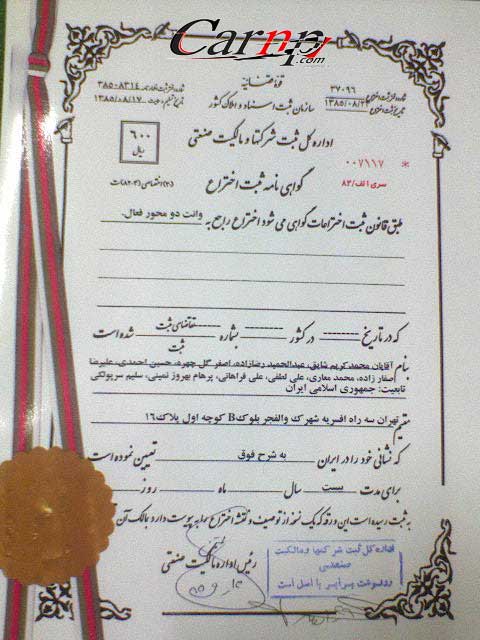 Carnp.com
قوهٔ قضائیه
سازمان ثبت اسناد و املاک کشور
شماره ثبت اختراع ۳۷۰۹۶
تاریخ ثبت اختراع ۱۳۸۵/۰۸/۲
۳۸۵۰۸۳۱۴
۱۳۸۵/۰۸/۱۷
اداره کل ثبت شرکتها و مالکیت صنعتی
۶۰۰
ریال
* ۰۰۷۱۱۷
سری الف/۸۲
گواهی نامه ثبت اختراع
(۲) اختصاصی (۳-۸۲) ث
طبق قانون ثبت اختراعات گواهی می شود اختراع راجع به وانت دو محور فعال.
که در تاریخ -------- در کشور -------- بشماره -------- تقاضای ثبت / ثبت شده است
بنام آقایان محمدکریم شایق، عبدالحمید رضازاده، اصغر گل چهره، حسین احمدی، علیرضا
صفار زاده، محمد معاری، علی لطفی، علی فراهانی، پرهام بهروز نمینی، سلیم سرپولکی
تابعیت: جمهوری اسلامی ایران
مقیم تهران سه راه افسریه شهرک والفجر بلوک B کوچه اول پلاک ۱۶
که نشانی خود را در ایران به شرح فوق تعیین نموده است
برای مدت بیست سال ماه روز
به ثبت رسیده است این ورقه که یک نسخه از توصیف و نقشه اختراع بپیوست دارد بمالک آن
رئیس اداره مالکیت صنعتی
اداره کل ثبت شرکتها و مالکیت
صنعتی
رونوشت برابر با اصل است